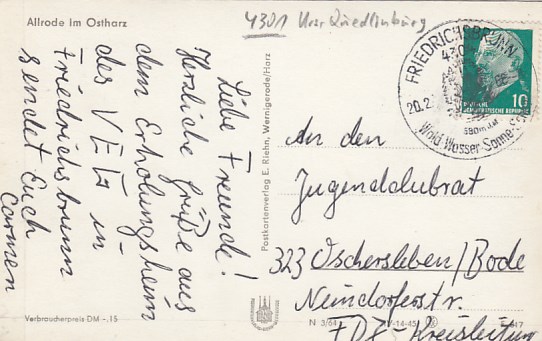 Allrode im Ostharz
4301 Krsr Quedlinburg
Liebe Freunde!
Herzliche Grüße aus
dem Erholungsheim
des VEG in
Friedrichsbrunn
sendet Euch
Carmen
Verbraucherpreis DM -.15
Postkartenverlag E. Riehn, Wernigerode/Harz
FRIEDRICHSBRUNN
430
20.2
580m
Wald Wasser Sonne
DEUTSCHE
DEMOKRATISCHE REPUBLIK
10
An den
Jugendclubrat
323 Oschersleben/Bode
Neindorferstr.
FDJ-Kreisleitung
N 3/64
V-14-45